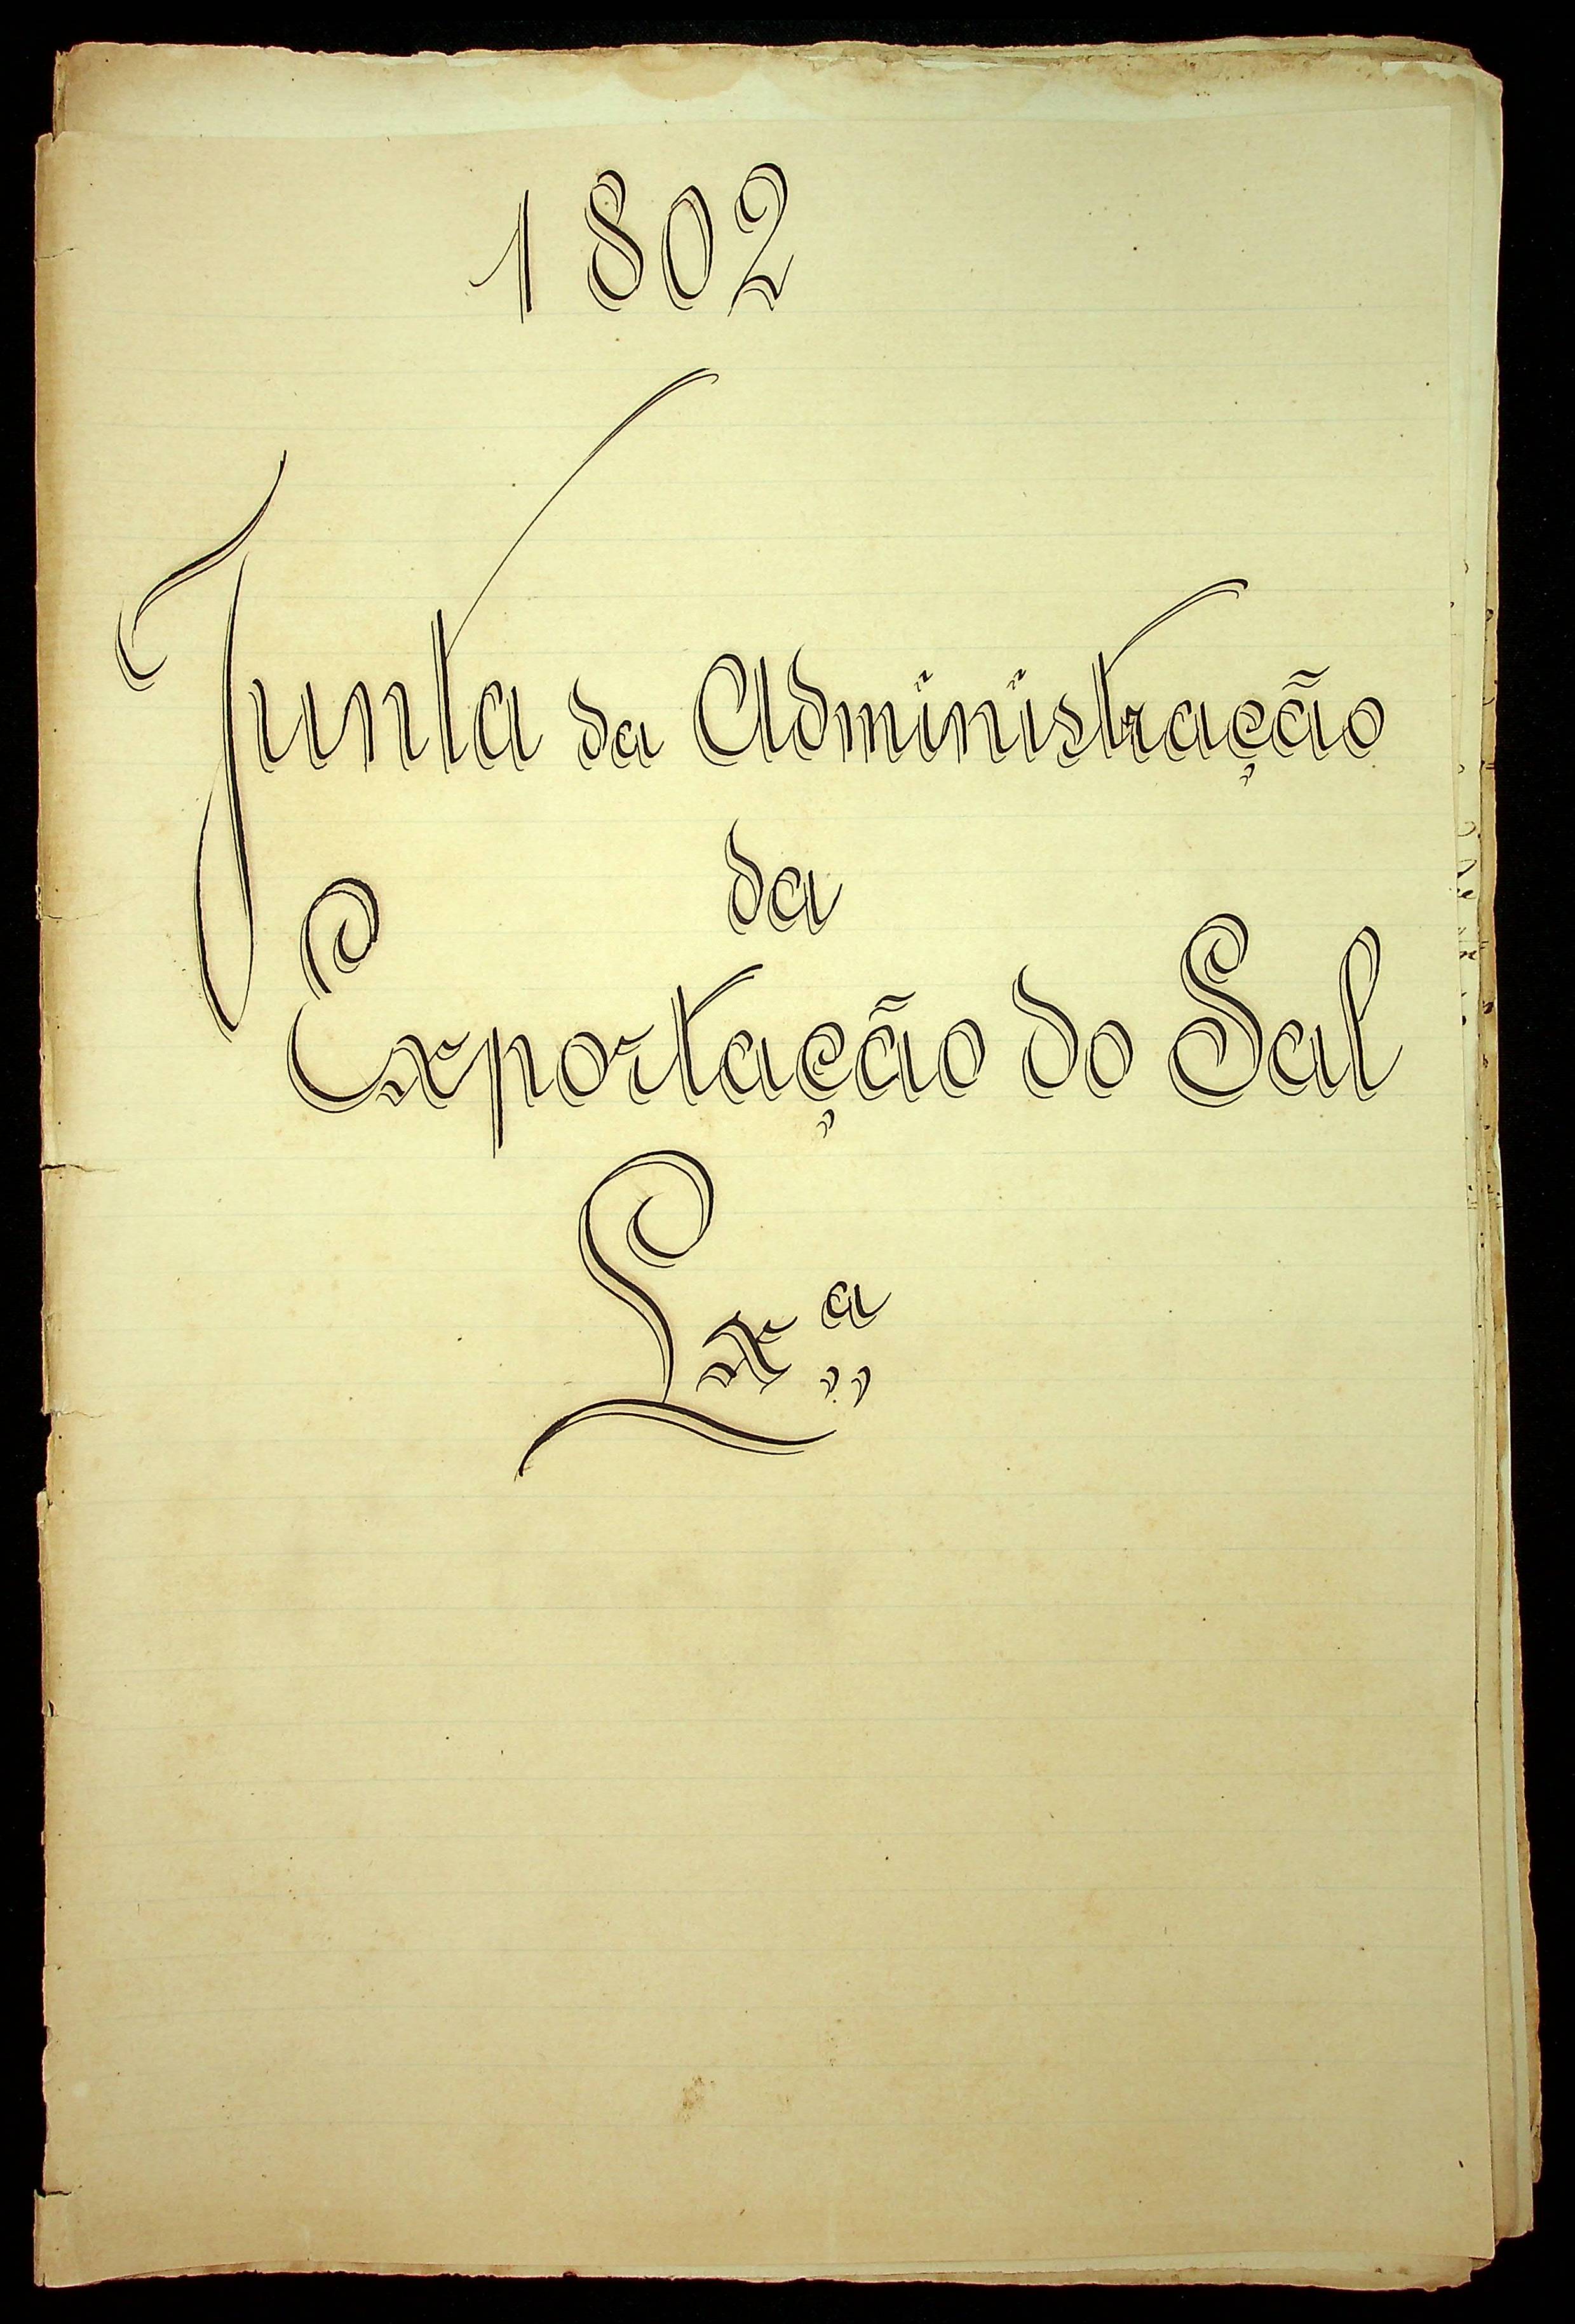 1802
Junta da Administração
da
Exportação do Sal
Lxª